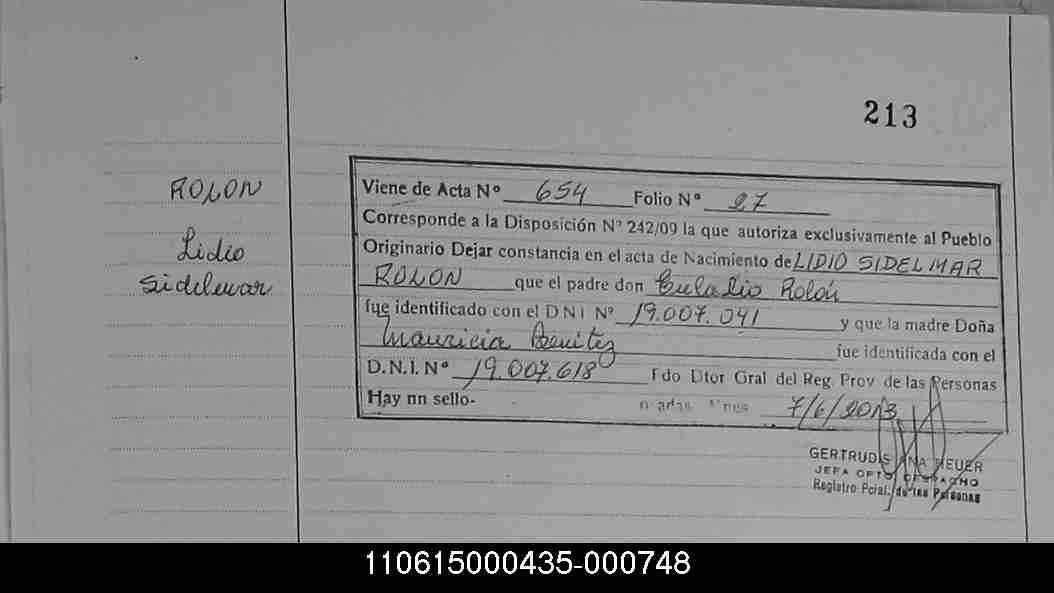 213
ROLON
Lidio
Sidelmar
Viene de Acta Nº 654 Folio Nº 27
Corresponde a la Disposición Nº 242/09 la que autoriza exclusivamente al Pueblo
Originario Dejar constancia en el acta de Nacimiento de LIDIO SIDELMAR
ROLON que el padre don Euladio Rolón
fue identificado con el D N I Nº 19.007.041 y que la madre Doña
Mauricia Benitez fue identificada con el
D.N.I. Nº 19.007.618 Fdo Dtor Gral del Reg. Prov de las Personas
Hay nn sello- 7/6/2013
GERTRUDIS ANA HEUER
JEFA DPTO DESPACHO
Registro Pcial. de las Personas
110615000435-000748